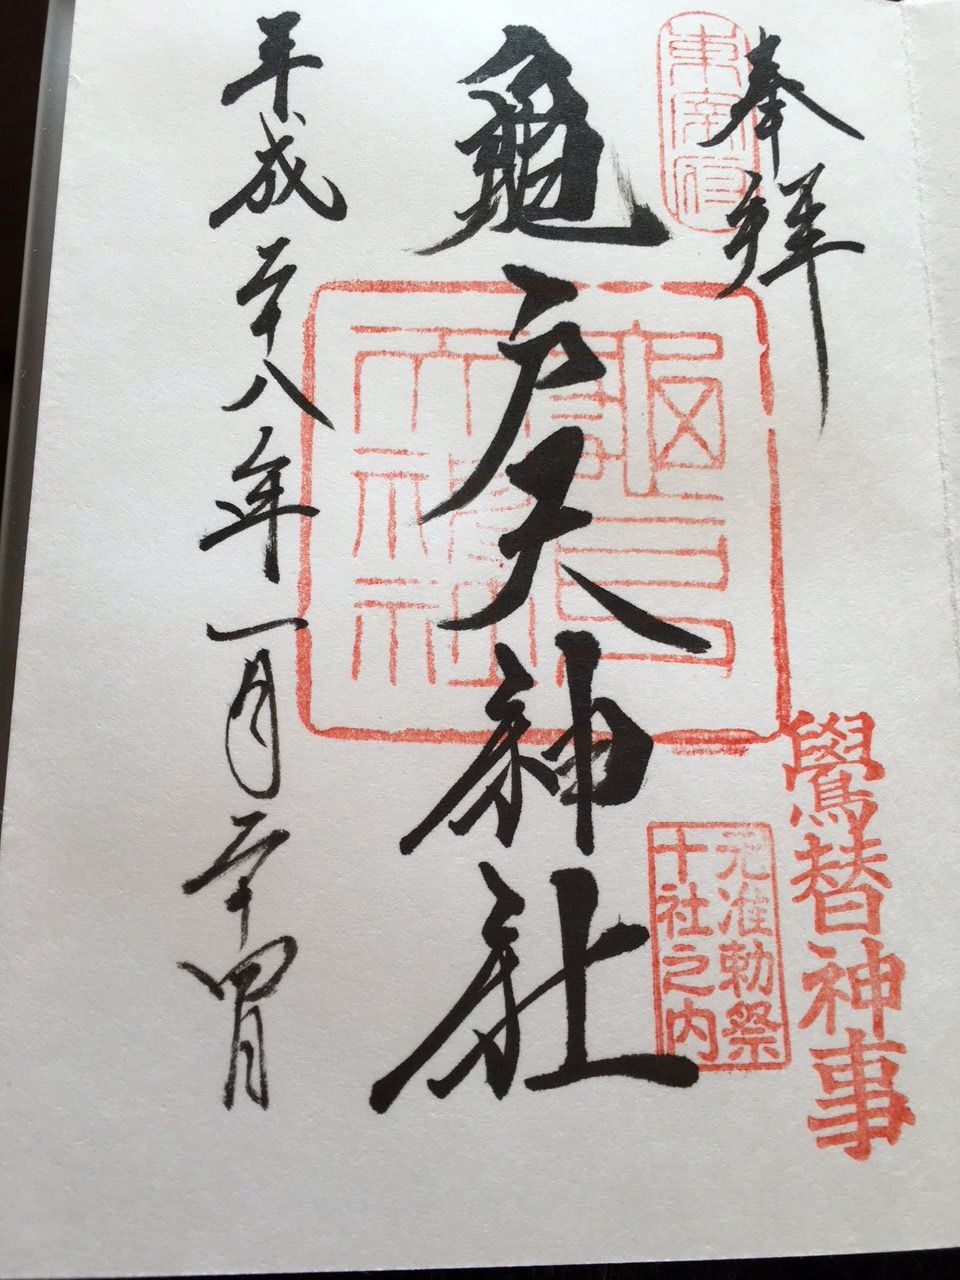 奉拝
東宰府
鷽替神事
元准勅祭
十社之内
龜戸天神社
平成二十八年一月二十四日